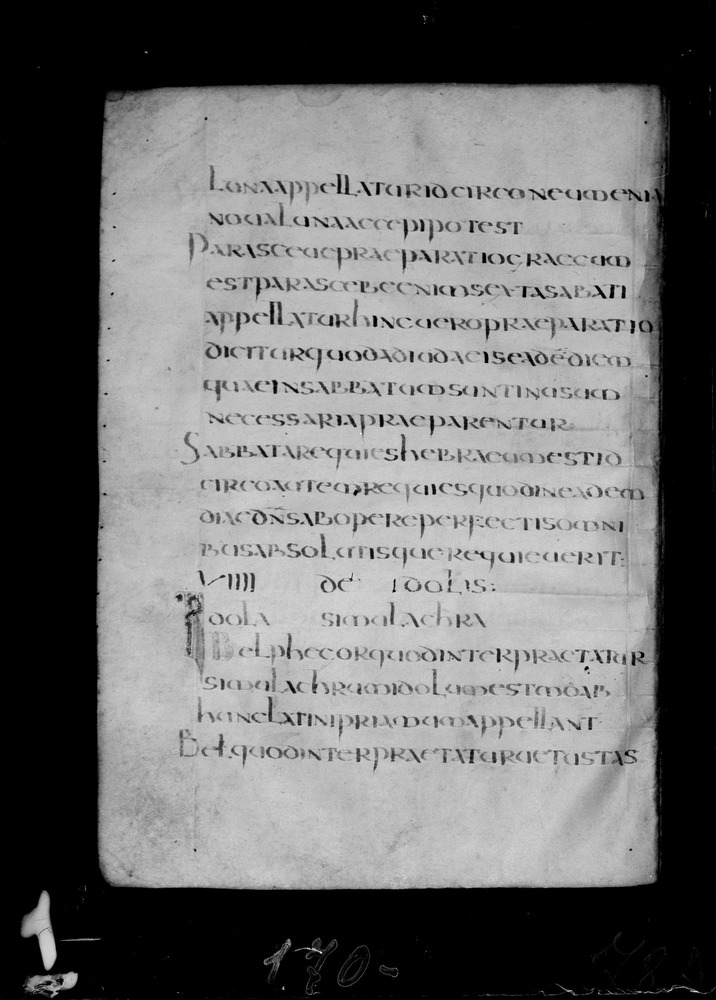 Lunaappellaturidcirconeumenia
nouaLunaaccepipotest
Parasceueprae paratiograecum
estparasceβeenimsextasabati
appellaturhincueropraeparatio
diciturquodadiudaeiseadediem
quaeinsabbatumsuntinusum
necessariapraeparentur
Sabbatarequieshebraeumestio
circoautemrequiesquodineadem
diaedn̄sabopereperfectisomni
busabsolutisquerequieuerit:
VIIII de idolis:
Idola simulachra
Belphecorquodinterpraetatur
simulachrumidolumestmoab
hunclatinipriamumappellant
Bel.quodinterpraetaturuetustas
170-